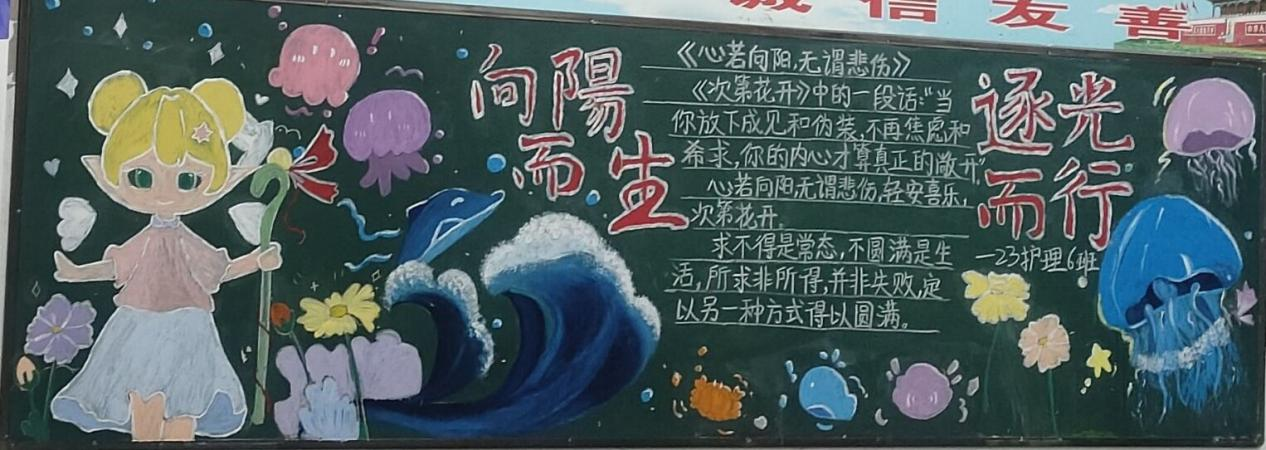 诚信友善
向陽
而生
《心若向阳,无谓悲伤》
《次第花开》中的一段话:“当
你放下成见和伪装,不再焦虑和
希求,你的内心才算真正的敞开”
心若向阳无谓悲伤,轻安喜乐,
次第花开。
求不得是常态,不圆满是生
活,所求非所得,并非失败,定
以另一种方式得以圆满。
逐光
而行
—23护理6班